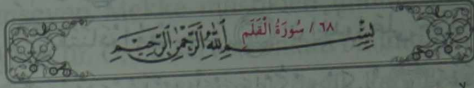 ٦٨ / سُورَةُ الْقَلَمِ
بِسْمِ اللَّهِ الرَّحْمَٰنِ الرَّحِيمِ
٧